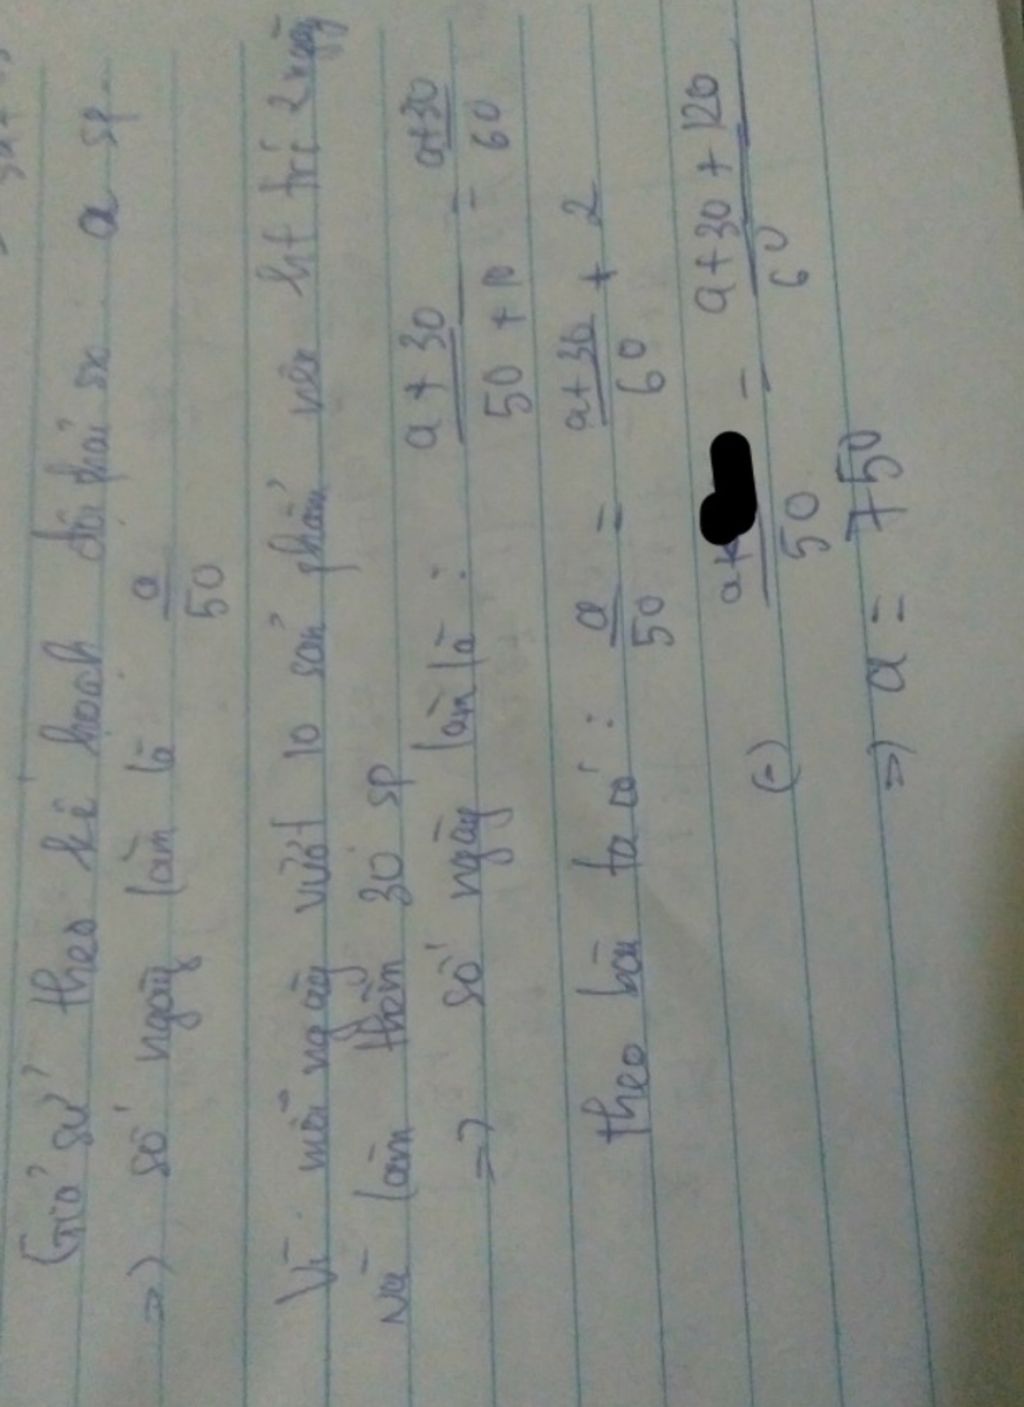 Giả sử theo kế hoạch đội phải sx a sp.
=) số ngày làm là a/50
Vì mỗi ngày vượt 10 sản phẩm nên ht trc 2 ngày
và làm thêm 30 sp
=) số ngày làm là : (a + 30)/(50 + 10) = (a+30)/60
theo bài ta có : a/50 = (a+30)/60 + 2
(-) a/50 = (a+30+120)/60
=) a = 750